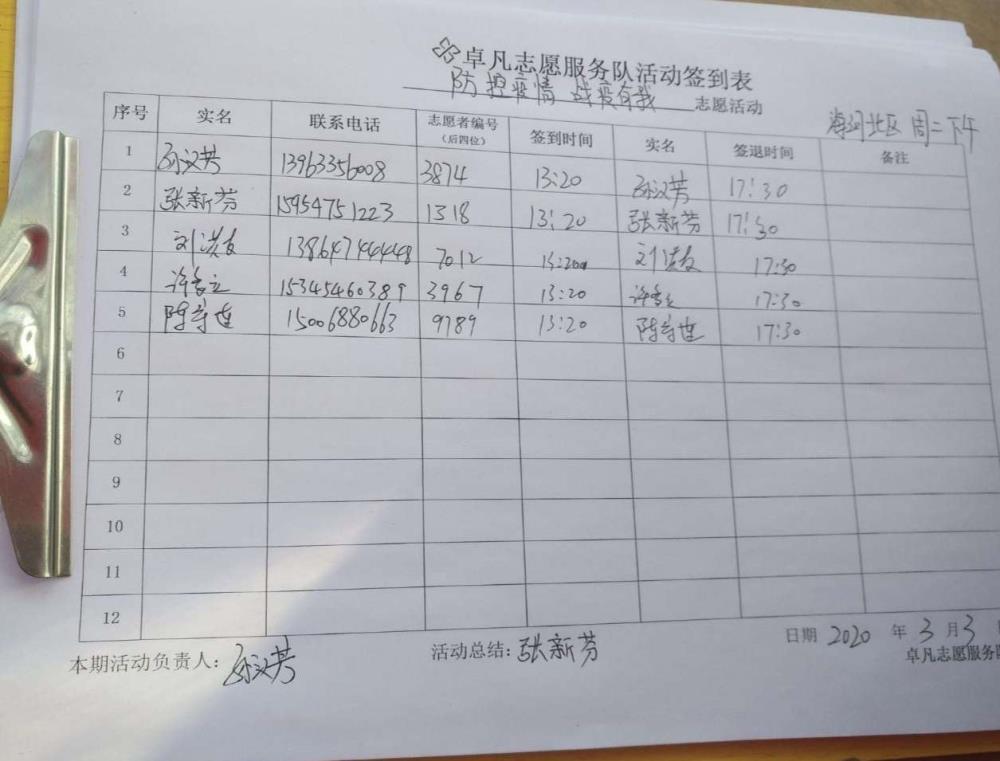 卓凡志愿服务队活动签到表
防控疫情 战疫有我 志愿活动
海河北区 周二下午
序号 实名 联系电话 志愿者编号（后四位） 签到时间 实名 签退时间 备注
1 孙汉芳 13963356008 3874 13:20 孙汉芳 17:30
2 张新芬 15954751223 1318 13:20 张新芬 17:30
3 刘洪友 13864744448 7012 13:20 刘洪友 17:30
4 15345460389 3967 13:20 17:30
5 15006880663 9789 13:20 17:30
6
7
8
9
10
11
12
本期活动负责人：孙汉芳 活动总结：张新芬 日期 2020 年 3 月 3
卓凡志愿服务队